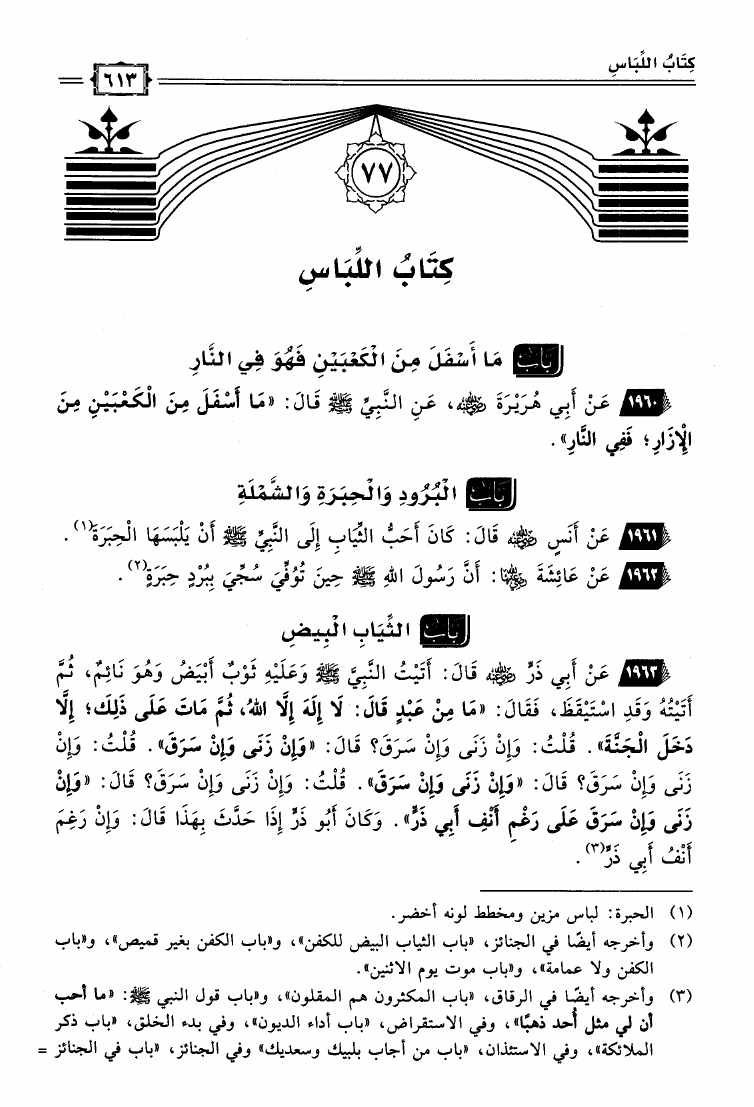 كِتَابُ اللِّبَاسِ
٦١٣
٧٧
كِتَابُ اللِّبَاسِ
بَابُ مَا أَسْفَلَ مِنَ الْكَعْبَيْنِ فَهُوَ فِي النَّارِ
١٩٦٠ عَنْ أَبِي هُرَيْرَةَ ﷺ، عَنِ النَّبِيِّ ﷺ قَالَ: «مَا أَسْفَلَ مِنَ الْكَعْبَيْنِ مِنَ
الْإِزَارِ؛ فَفِي النَّارِ».
بَابُ الْبُرُودِ وَالْحِبَرَةِ وَالشَّمْلَةِ
١٩٦١ عَنْ أَنَسٍ رضي الله عنه قَالَ: كَانَ أَحَبُّ الثِّيَابِ إِلَى النَّبِيِّ ﷺ أَنْ يَلْبَسَهَا الْحِبَرَةَ(١).
١٩٦٢ عَنْ عَائِشَةَ رضي الله عنها: أَنَّ رَسُولَ اللهِ ﷺ حِينَ تُوُفِّيَ سُجِّيَ بِبُرْدٍ حِبَرَةٍ(٢).
بَابُ الثِّيَابِ الْبِيضِ
١٩٦٣ عَنْ أَبِي ذَرٍّ رضي الله عنه قَالَ: أَتَيْتُ النَّبِيَّ ﷺ وَعَلَيْهِ ثَوْبٌ أَبْيَضُ وَهُوَ نَائِمٌ، ثُمَّ
أَتَيْتُهُ وَقَدِ اسْتَيْقَظَ، فَقَالَ: «مَا مِنْ عَبْدٍ قَالَ: لَا إِلَهَ إِلَّا اللهُ، ثُمَّ مَاتَ عَلَى ذَلِكَ؛ إِلَّا
دَخَلَ الْجَنَّةَ». قُلْتُ: وَإِنْ زَنَى وَإِنْ سَرَقَ؟ قَالَ: «وَإِنْ زَنَى وَإِنْ سَرَقَ». قُلْتُ: وَإِنْ
زَنَى وَإِنْ سَرَقَ؟ قَالَ: «وَإِنْ زَنَى وَإِنْ سَرَقَ». قُلْتُ: وَإِنْ زَنَى وَإِنْ سَرَقَ؟ قَالَ: «وَإِنْ
زَنَى وَإِنْ سَرَقَ عَلَى رَغْمِ أَنْفِ أَبِي ذَرٍّ». وَكَانَ أَبُو ذَرٍّ إِذَا حَدَّثَ بِهَذَا قَالَ: وَإِنْ رَغِمَ
أَنْفُ أَبِي ذَرٍّ(٣).
(١) الحبرة: لباس مزين ومخطط لونه أخضر.
(٢) وأخرجه أيضًا في الجنائز، «باب الثياب البيض للكفن»، و«باب الكفن بغير قميص»، و«باب
الكفن ولا عمامة»، و«باب موت يوم الاثنين».
(٣) وأخرجه أيضًا في الرقاق، «باب المكثرون هم المقلون»، و«باب قول النبي ﷺ: «ما أحب
أن لي مثل أُحد ذهبًا»، وفي الاستقراض، «باب أداء الديون»، وفي بدء الخلق، «باب ذكر
الملائكة»، وفي الاستئذان، «باب من أجاب بلبيك وسعديك» وفي الجنائز، «باب في الجنائز =